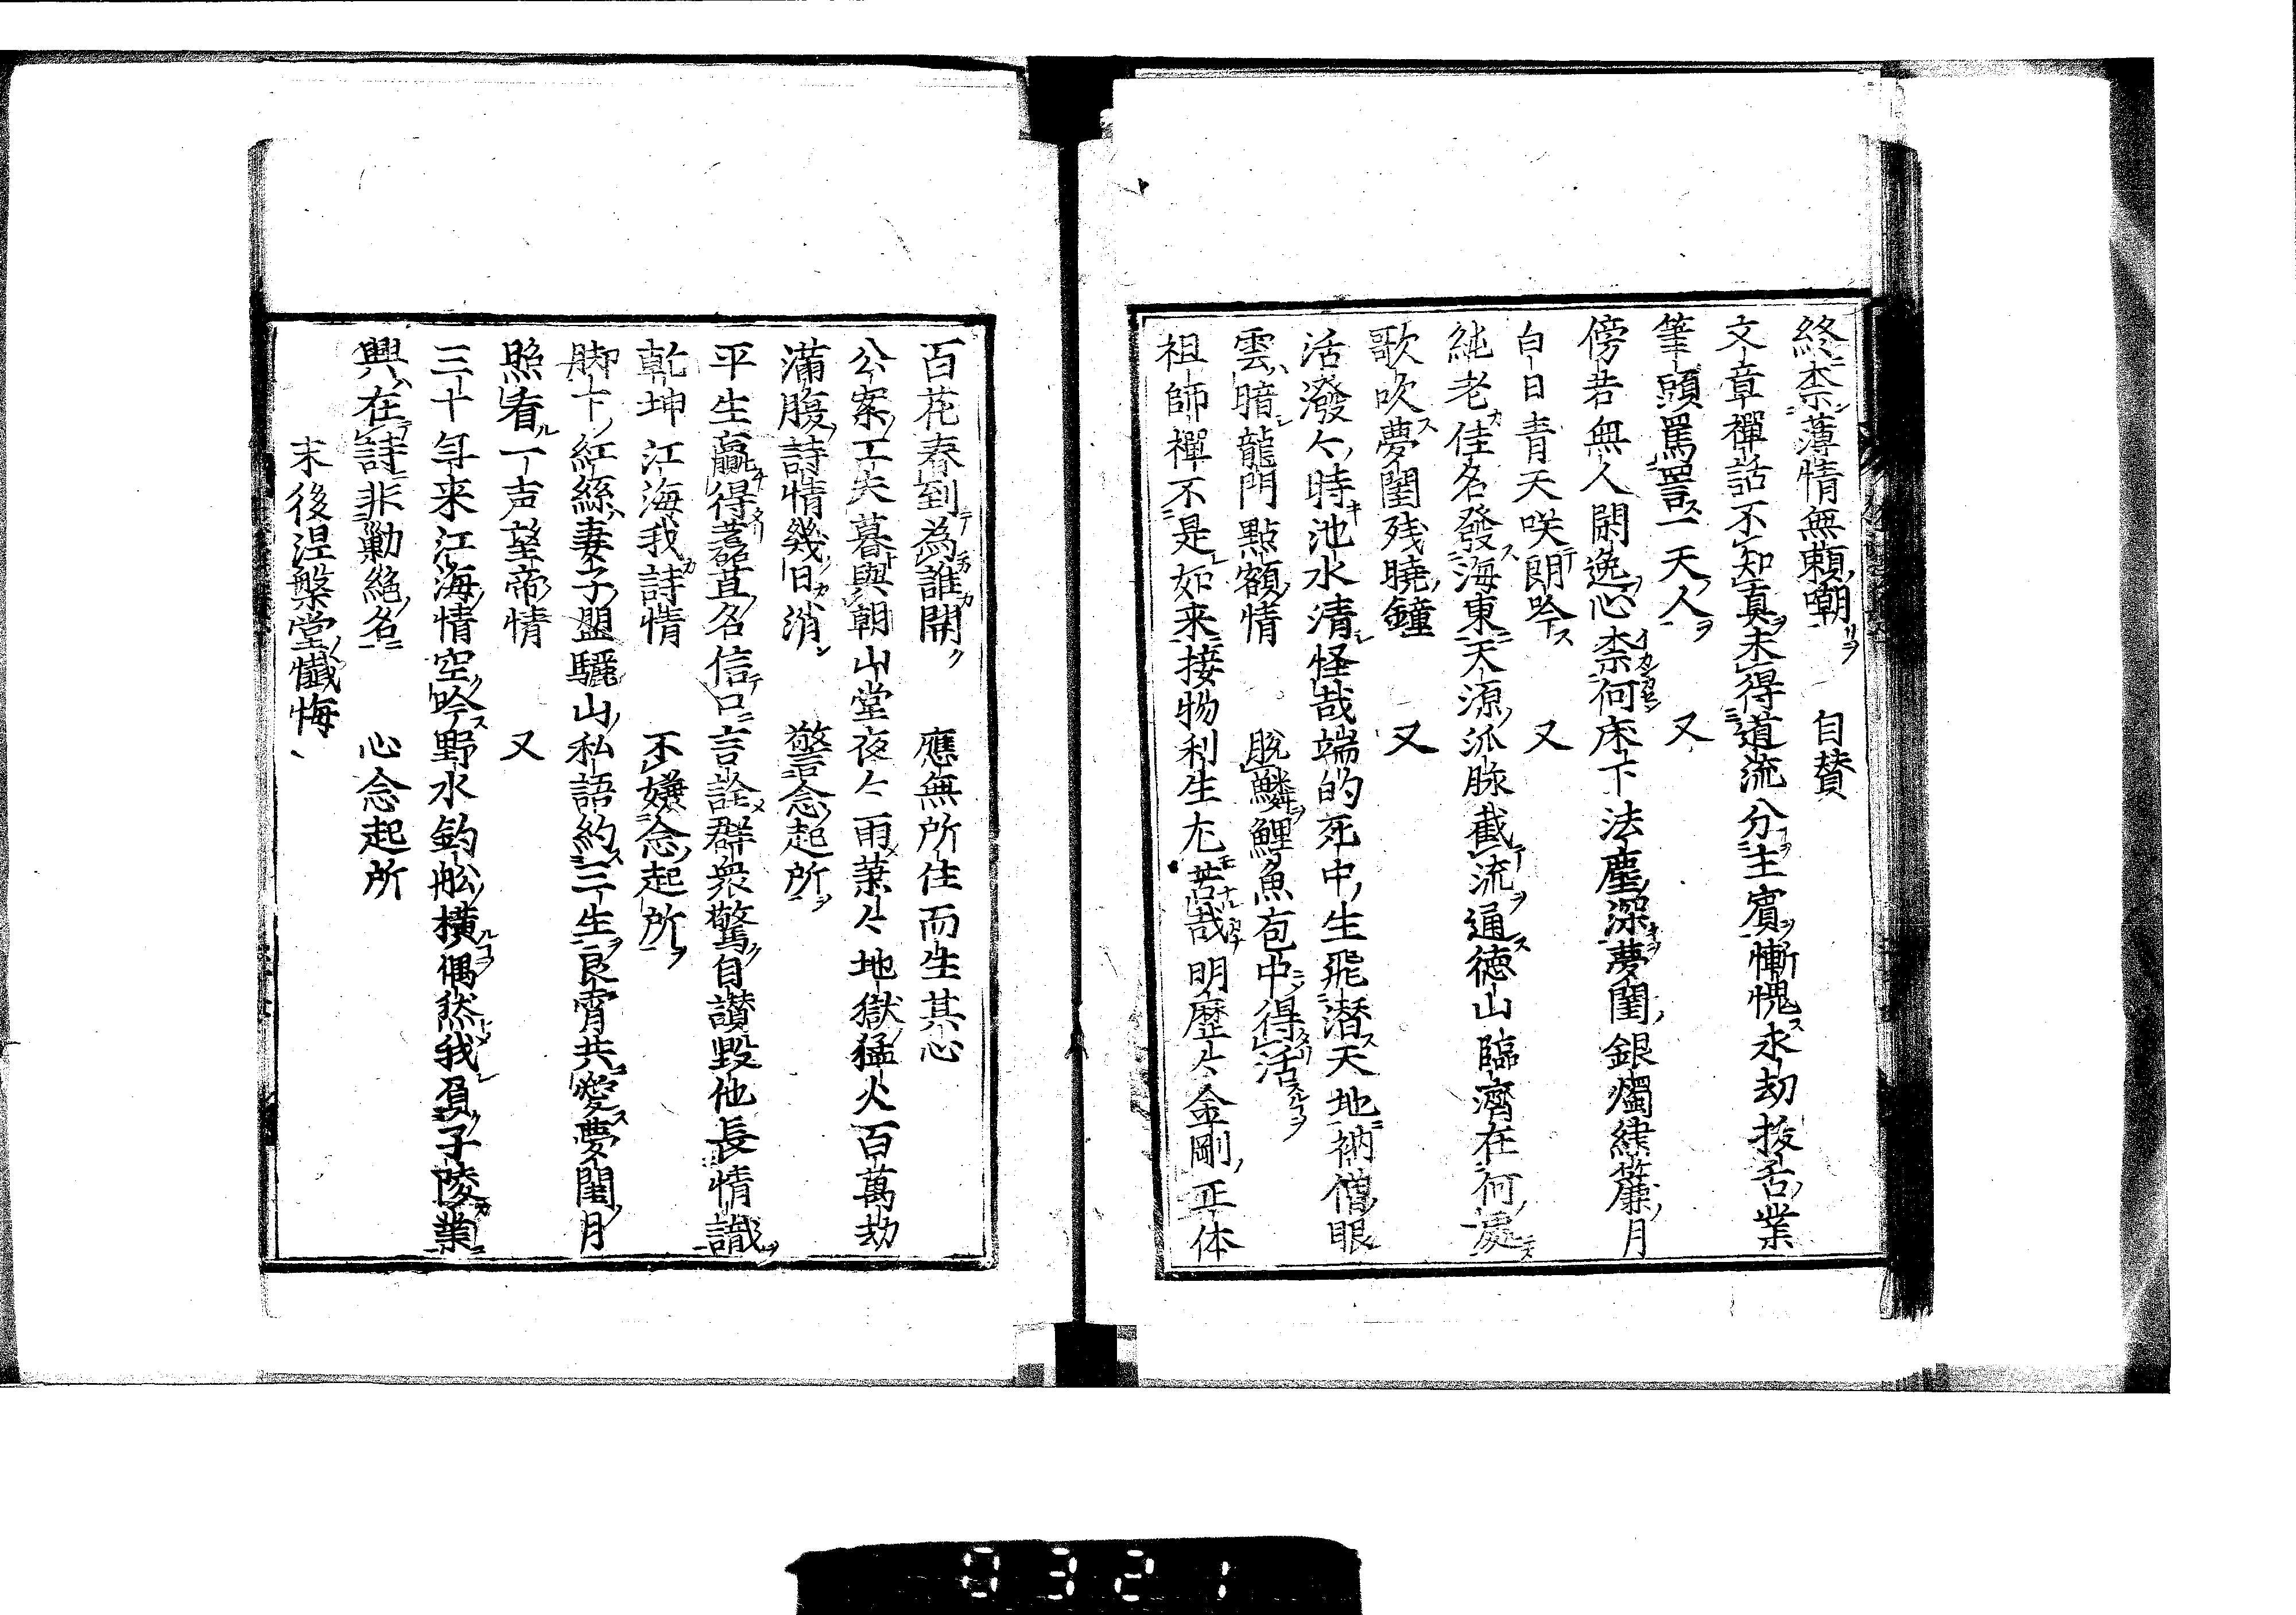 終柰薄情無頼嘲　自賛
文章禪話不知真未得道流分主賓慚愧永劫拔舌業
筆頭罵詈一天人　又
傍若無人閑逸心柰何床下法塵深夢閨銀燭繍簾月
白日青天咲朗吟　又
純老佳名發海東天源派脉截流通德山臨濟在何處
歌吹夢閨残曉鐘　又
活潑々時池水清怪哉端的死中生飛潜天地衲僧眼
雲暗龍門點額情　脱鱗鯉魚苞中得活
祖師禪不是如来接物利生尤苦哉明歴々金剛正体
百花春到為誰開　應無所住而生其心
公案工夫暮與朝山堂夜々雨葉々地獄猛火百萬劫
滿腹詩情幾日消　警念起所
平生贏得苴名信口言詮群衆驚自讃毀他長情識
乾坤江海我詩情　不嫌念起所
脚下紅絲妻子盟驪山私語約三生良宵共愛夢閨月
照看一声望帝情　又
三十年来江海情空吟野水釣舩橫偶然我負子陵業
興在詩非勦絶名　心念起所
末後涅槃堂懺悔
9321